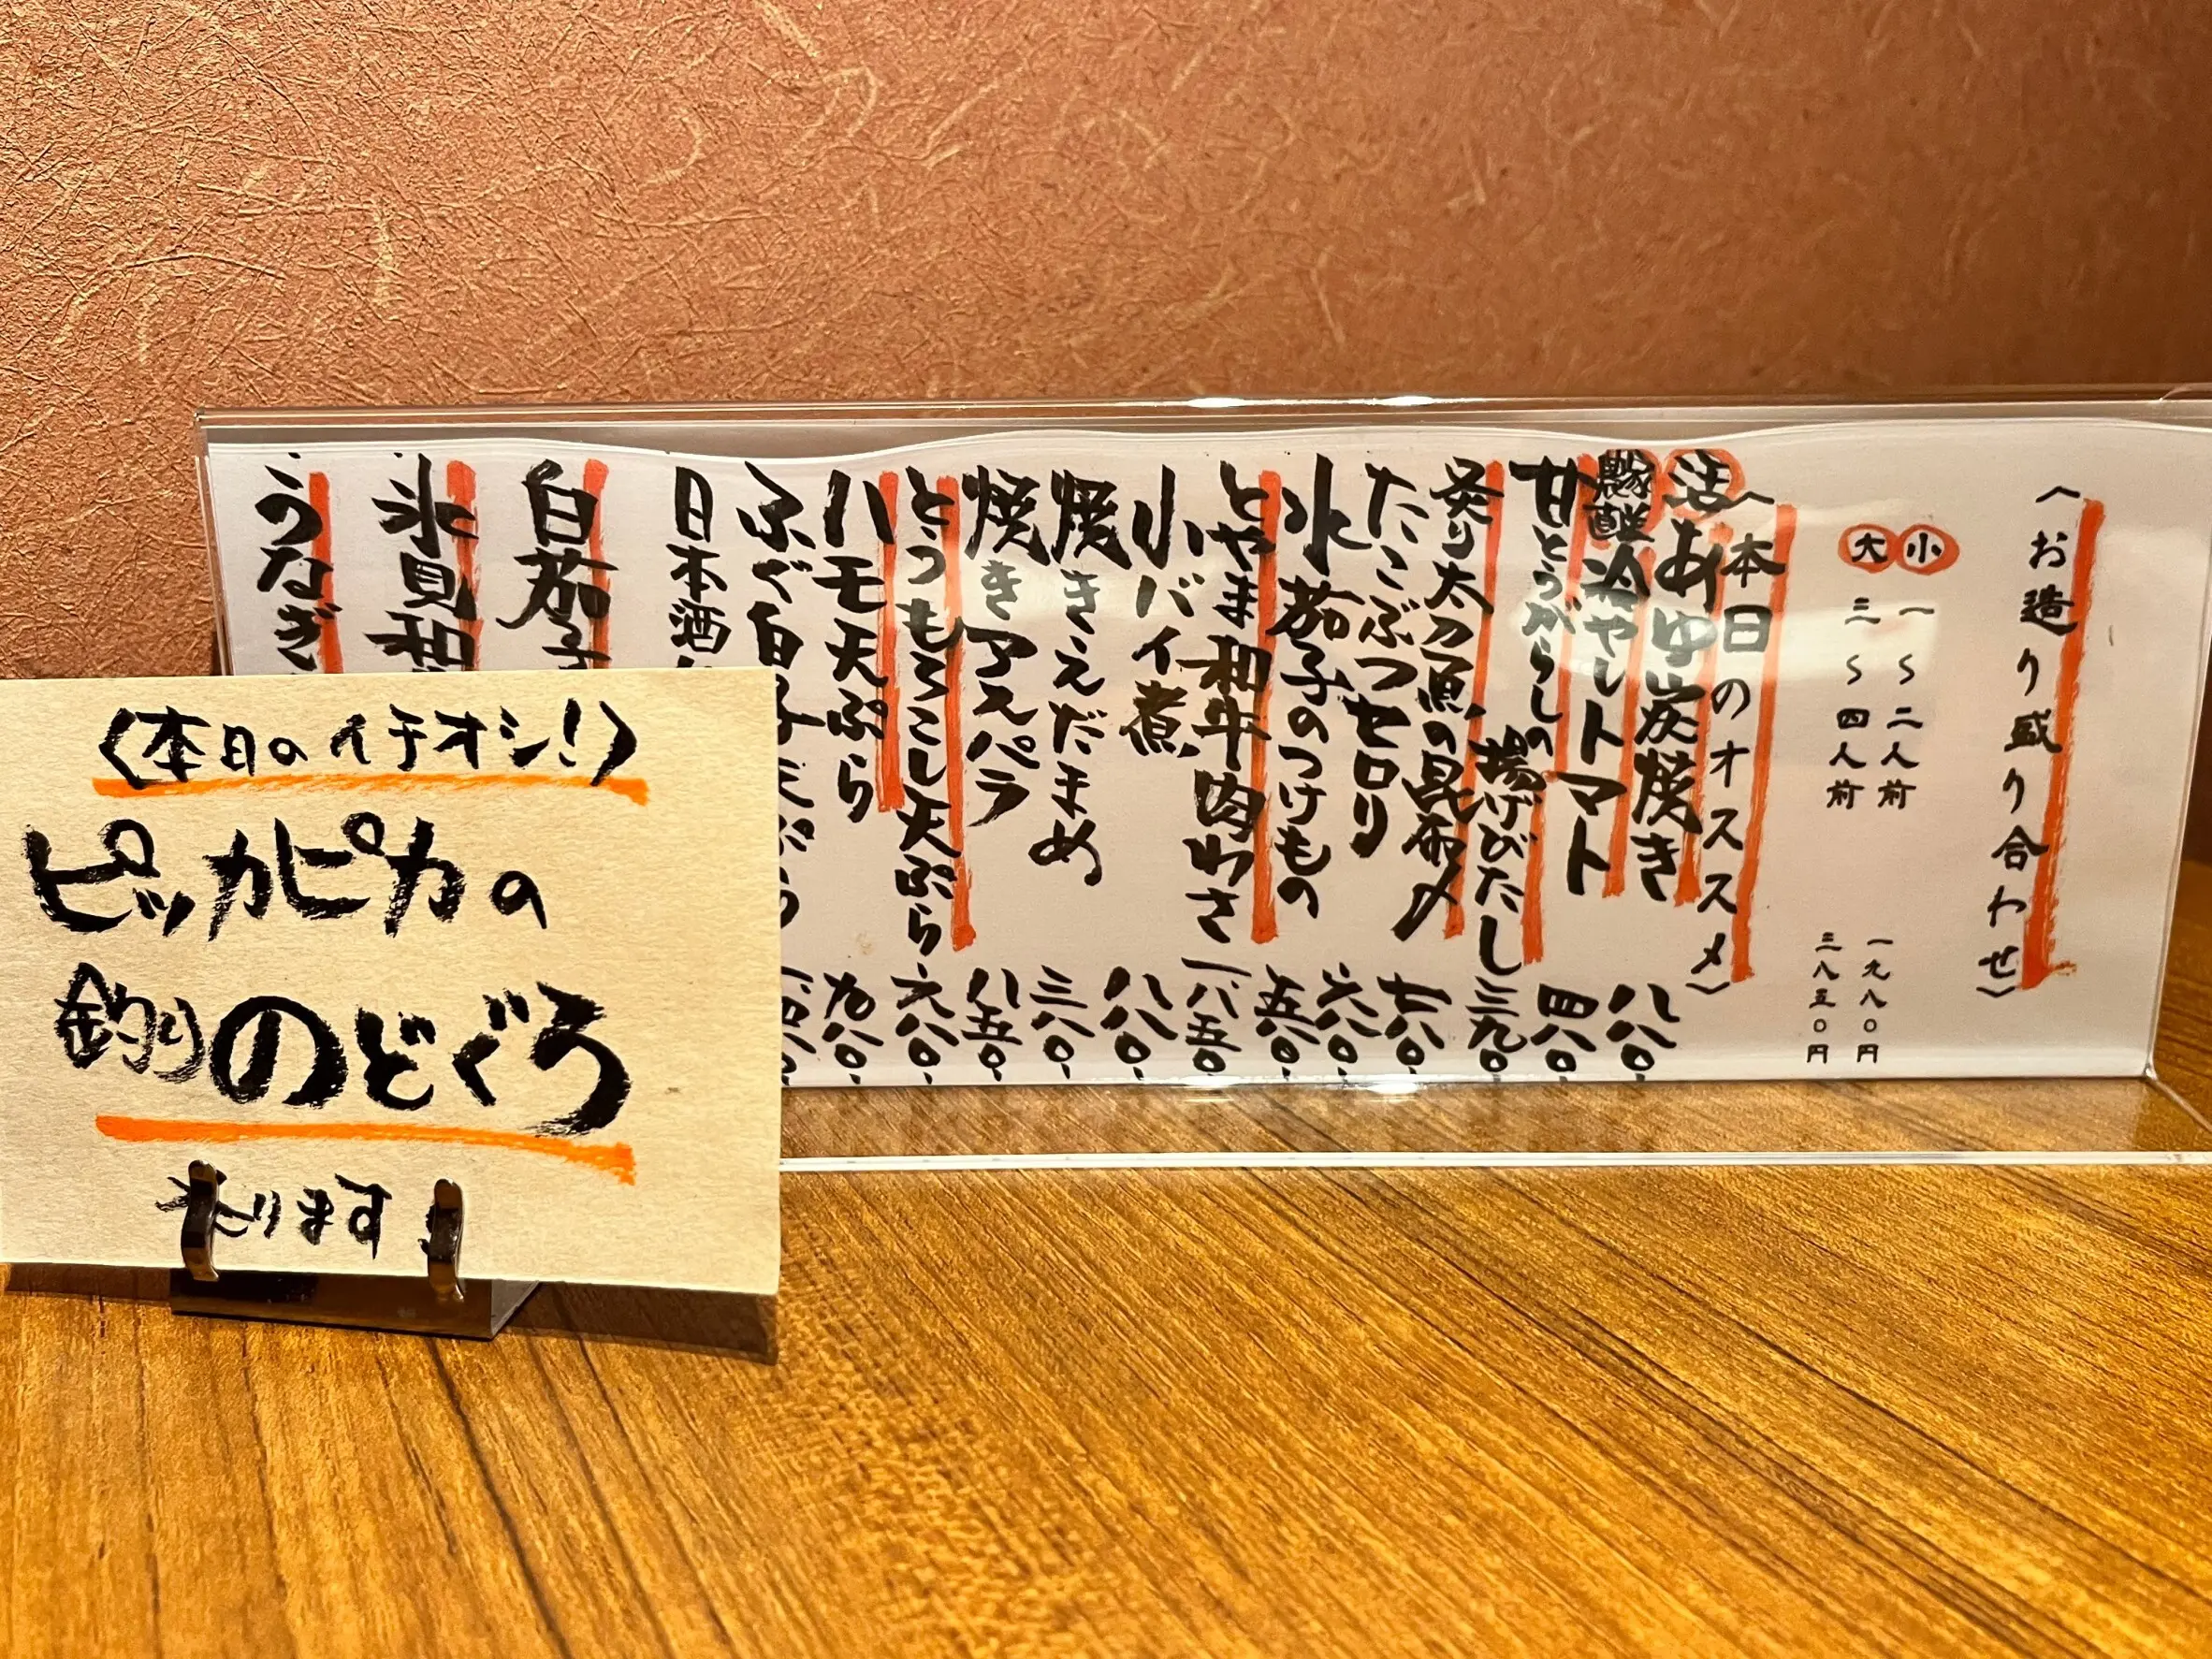 〈本日のイチオシ！〉
ピッカピカの
釣りのどぐろ
あります！
〈お造り盛り合わせ〉
小 一〜二人前 一九八〇円
大 三〜四人前 三八五〇円
〈本日のオススメ〉
活あゆ炭焼き 八八〇、
冷やしトマト 四八〇、
甘とうがらしの揚げびたし 三九〇、
炙り太刀魚の昆布〆 七八〇、
たこぶつセロリ 六八〇、
水茄子のつけもの 五八〇、
とやま和牛肉わさ 一八五〇、
小バイ煮 八八〇、
焼きえだまめ 三八〇、
焼きアスパラ 八五〇、
とうもろこし天ぷら 六八〇、
ハモ天ぷら 九八〇、
ふぐ白子天ぷら
日本酒
白茄子
氷見和
うなぎ